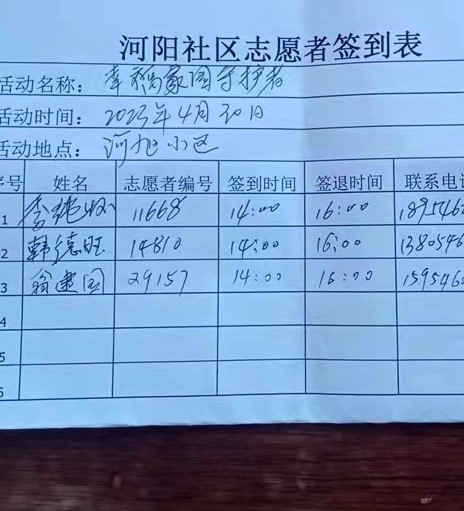 河阳社区志愿者签到表
活动名称：幸福家园守护者
活动时间：2023年4月30日
活动地点：河旭小区
序号 姓名 志愿者编号 签到时间 签退时间 联系电
1 李 11668 14:00 16:00
2 韩德旺 14810 14:00 16:00 1380546
3 翁建国 29157 14:00 16:00 1595462
4
5
6